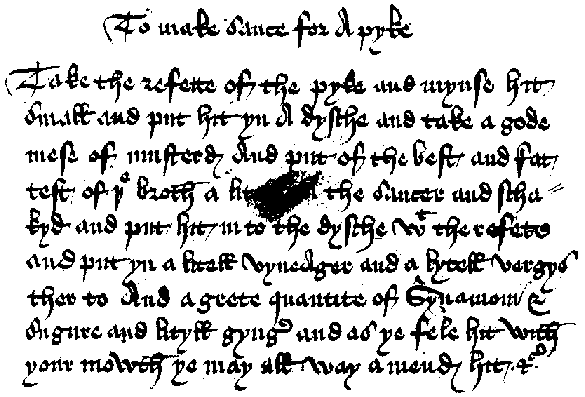 To make sauce for A pyke
Take the refette of the pyke and mynse hit
small and put hit yn A dysche and take a gode
mese of musterd And put of the best and fat
test of þe broth a lit the saucer and scha
kyd and put hit in to the dysche wt the refete
and put yn a litell vyneAger and a lytell vergys
ther to And a grete quantite of Synamon &
sugure and lityll gyng and as ye fele hit with
your mowth ye may all way amend hit &c